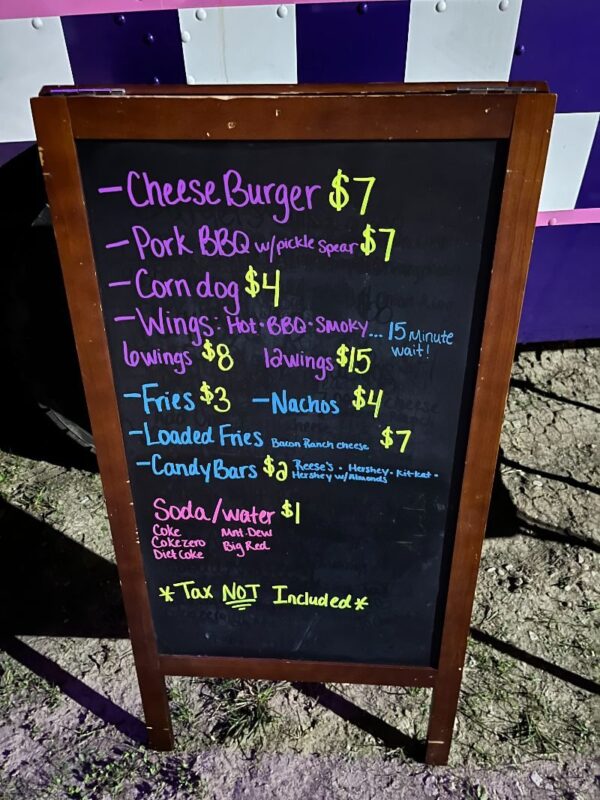 -Cheese Burger $7
-Pork BBQ w/pickle spear $7
-Corn dog $4
-Wings: Hot • BBQ • Smoky... 15 Minute wait!
6 wings $8 12 wings $15
-Fries $3 -Nachos $4
-Loaded Fries Bacon Ranch cheese $7
-Candy Bars $2 Reese's • Hershey • Kit Kat •
Hershey w/Almonds
Soda/water $1
Coke Mnt. Dew
Coke zero Big Red
Diet Coke
*Tax NOT Included*